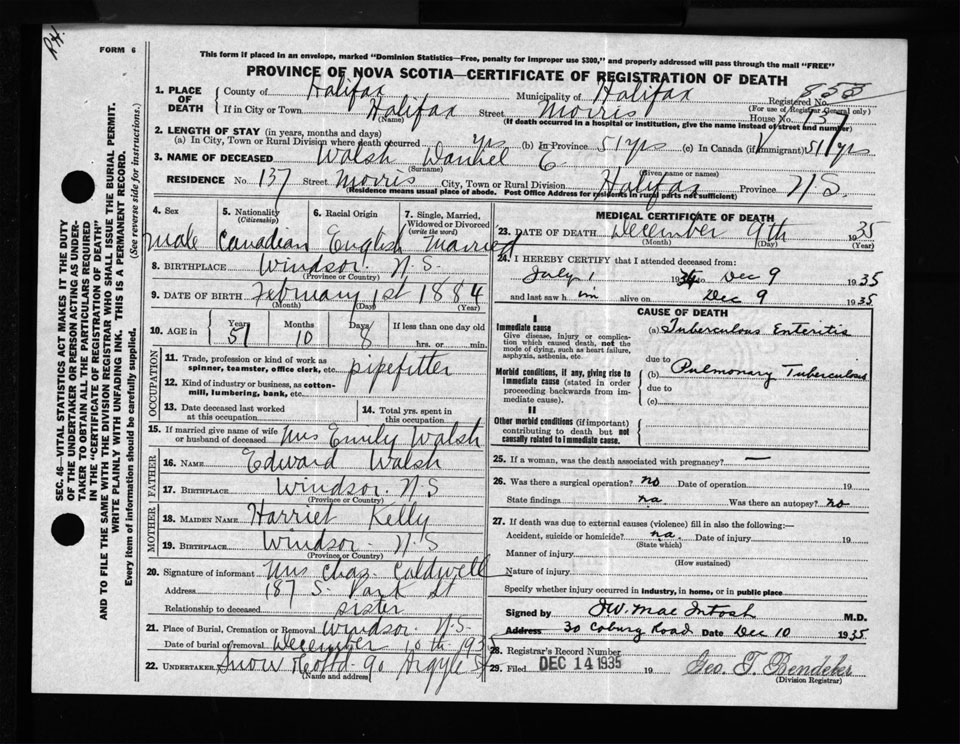 P.H.
FORM 6
This form if placed in an envelope, marked "Dominion Statistics—Free, penalty for improper use $300," and properly addressed will pass through the mail "FREE"
PROVINCE OF NOVA SCOTIA—CERTIFICATE OF REGISTRATION OF DEATH
1. PLACE OF DEATH
County of Halifax Municipality of Halifax Registered No.
(For use of Registrar General only)
If in City or Town Halifax Street Morris House No. 137
(Name) (If death occurred in a hospital or institution, give the name instead of street and number)
2. LENGTH OF STAY (in years, months and days)
(a) In City, Town or Rural Division where death occurred yrs (b) In Province 51 yrs (c) In Canada (if immigrant) 51 yrs
3. NAME OF DECEASED Walsh Daniel C
(Surname) (Given name or names)
RESIDENCE No. 137 Street Morris City, Town or Rural Division Halifax Province N.S.
(Residence means usual place of abode. Post Office Address for residents in rural parts not sufficient)
4. Sex 5. Nationality (Citizenship) 6. Racial Origin 7. Single, Married, Widowed or Divorced (write the word)
male Canadian English Married
8. BIRTHPLACE Windsor N.S.
(Province or Country)
9. DATE OF BIRTH February 1st 1884
(Month) (Day) (Year)
10. AGE in Years Months Days If less than one day old
51 10 8 hrs. or min.
OCCUPATION
11. Trade, profession or kind of work as spinner, teamster, office clerk, etc. pipefitter
12. Kind of industry or business, as cotton-mill, lumbering, bank, etc.
13. Date deceased last worked at this occupation 14. Total yrs. spent in this occupation
15. If married give name of wife or husband of deceased Mrs Emily Walsh
FATHER
16. NAME Edward Walsh
17. BIRTHPLACE Windsor N.S
(Province or Country)
MOTHER
18. MAIDEN NAME Harriet Kelly
19. BIRTHPLACE Windsor N.S
(Province or Country)
20. Signature of informant Mrs Chas. Caldwell
Address 187 S. Park St
Relationship to deceased sister
21. Place of Burial, Cremation or Removal Windsor N.S.
Date of burial or removal December 10th 1935
22. UNDERTAKER Snow 90 Argyle St
(Name and address)
MEDICAL CERTIFICATE OF DEATH
23. DATE OF DEATH December 9th 1935
(Month) (Day) (Year)
24. I HEREBY CERTIFY that I attended deceased from:
July 1 19 to Dec 9 1935
and last saw h im alive on Dec 9 1935
CAUSE OF DEATH
I
Immediate cause
Give disease, injury or complication which caused death, not the mode of dying, such as heart failure, asphyxia, asthenia, etc.
(a) Tuberculous Enteritis
due to
Morbid conditions, if any, giving rise to immediate cause (stated in order proceeding backwards from immediate cause).
(b) Pulmonary Tuberculous
due to
(c)
II
Other morbid conditions (if important) contributing to death but not causally related to immediate cause.
25. If a woman, was the death associated with pregnancy? —
26. Was there a surgical operation? no Date of operation 19
State findings na Was there an autopsy? no
27. If death was due to external causes (violence) fill in also the following:—
Accident, suicide or homicide? na. Date of injury 19
(State which)
Manner of injury
(How sustained)
Nature of injury
Specify whether injury occurred in industry, in home, or in public place
Signed by J.W. MacIntosh M.D.
Address 30 Coburg Road Date Dec 10 1935
28. Registrar's Record Number
29. Filed DEC 14 1935 19 Geo. T. Bendeber
(Division Registrar)
SEC. 46—VITAL STATISTICS ACT MAKES IT THE DUTY
OF THE UNDERTAKER OR PERSON ACTING AS UNDER-
TAKER TO OBTAIN ALL THE PARTICULARS REQUIRED
IN THE "CERTIFICATE OF REGISTRATION OF DEATH"
AND TO FILE THE SAME WITH THE DIVISION REGISTRAR WHO SHALL ISSUE THE BURIAL PERMIT.
WRITE PLAINLY WITH UNFADING INK. THIS IS A PERMANENT RECORD.
Every item of information should be carefully supplied. (See reverse side for instructions.)